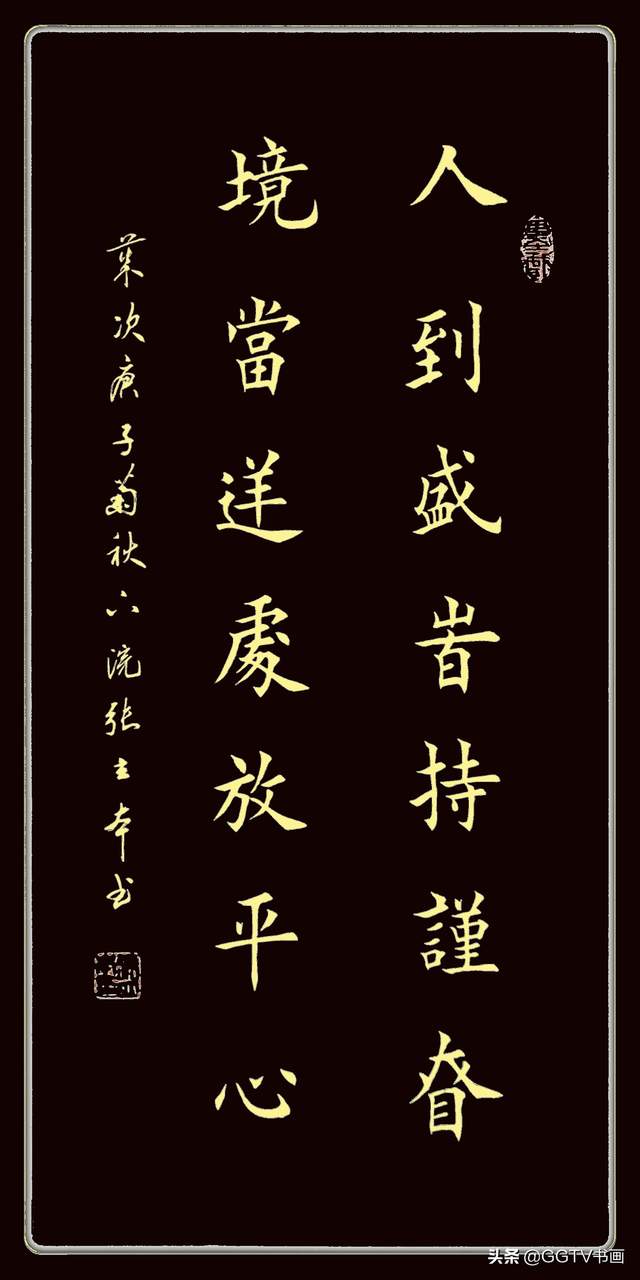 人到盛旹持謹眘
境當逆處放平心
次庚子菊秋下浣张本书
头条 @GGTV书画